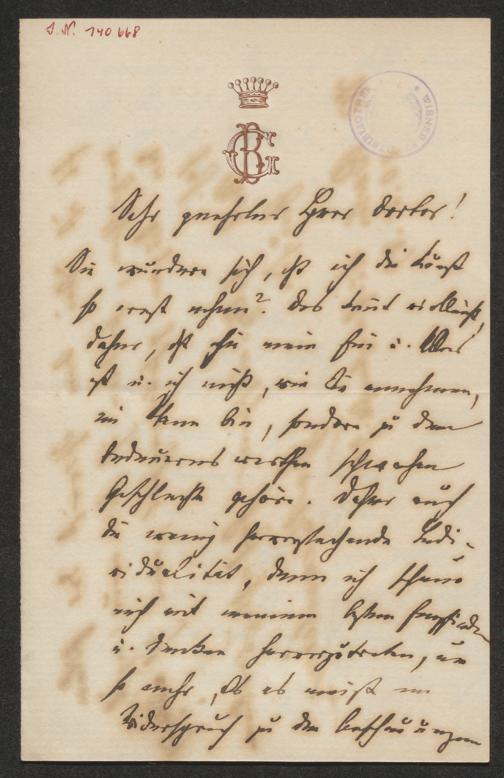 I. N. 140668
Sehr geehrter Herr Doctor!
Sie wundern sich, daß ich die Kunst
so ernst nehme? Das kommt vielleicht
daher, daß sie mein Ein u. Alles
ist u. ich nicht, wie Sie annehmen,
ein Mann bin, sondern zu dem
bedauerns werthen schwachen
Geschlechte gehöre. Daher auch
die wenig hervorstechende Indi-
vidualität, denn ich scheue
mich mit meinem besten Empfinden
u. Denken hervorzutreten, um
so mehr, als es meist im
Widerspruch zu den Anschauungen